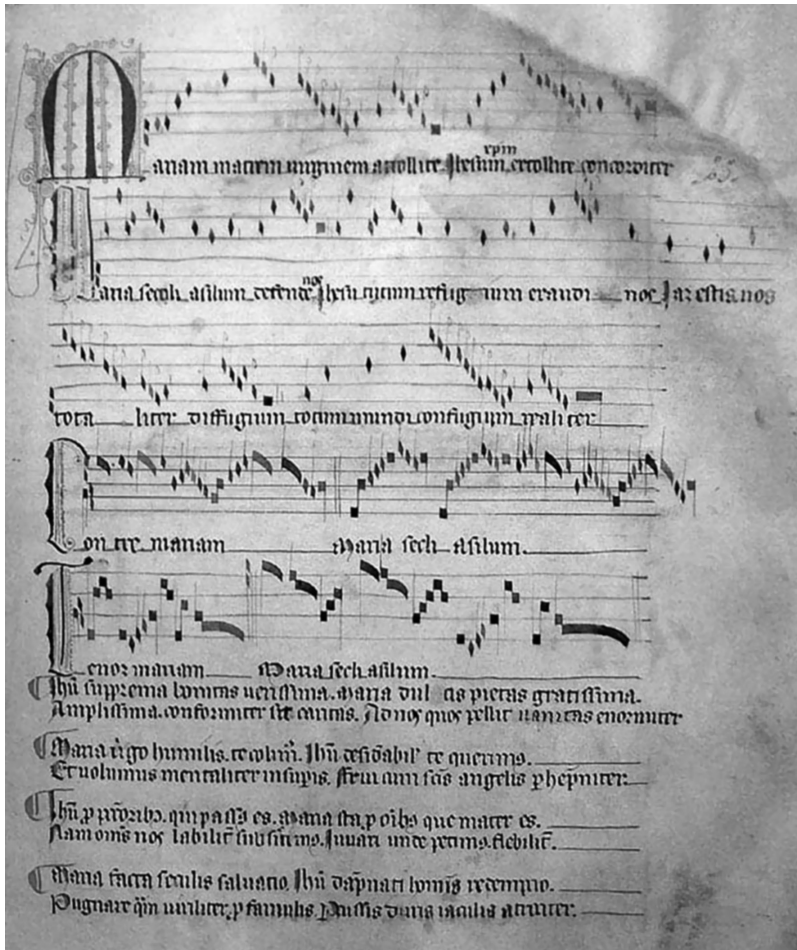 Mariam matrem uirginem attollite. Ihesum xpm extollite concorditer
Maria secli asilum defende nos Ihesu tutum refugium exaudi nos Iam estis nos
totaliter diffugium totum mundi confugium realiter
Contre mariam Maria secli asilum.
Tenor mariam Maria secli asilum.
Ihu suprema bonitas uerissima. Maria dulcis pietas gratissima.
Amplissima. conformiter sit caritas. Ad nos quos pellit uanitas enormiter
Maria uirgo humilis. te colim. Ihu desiderabil te querimus.
Et uolumus mentaliter in supis. frui cum scis angelis phepniter.
Ihu p pctoribus. qui passus es. Maria sta p oibus que mater es.
Nam omes nos labilit subsistimus. Iuuari unde petimus. flebilit.
Maria facta seculis saluatio. Ihu dapnati hominis redemptio.
Pugnare qm uiriliter. p famulis. Percussis duris iaculis atrociter.